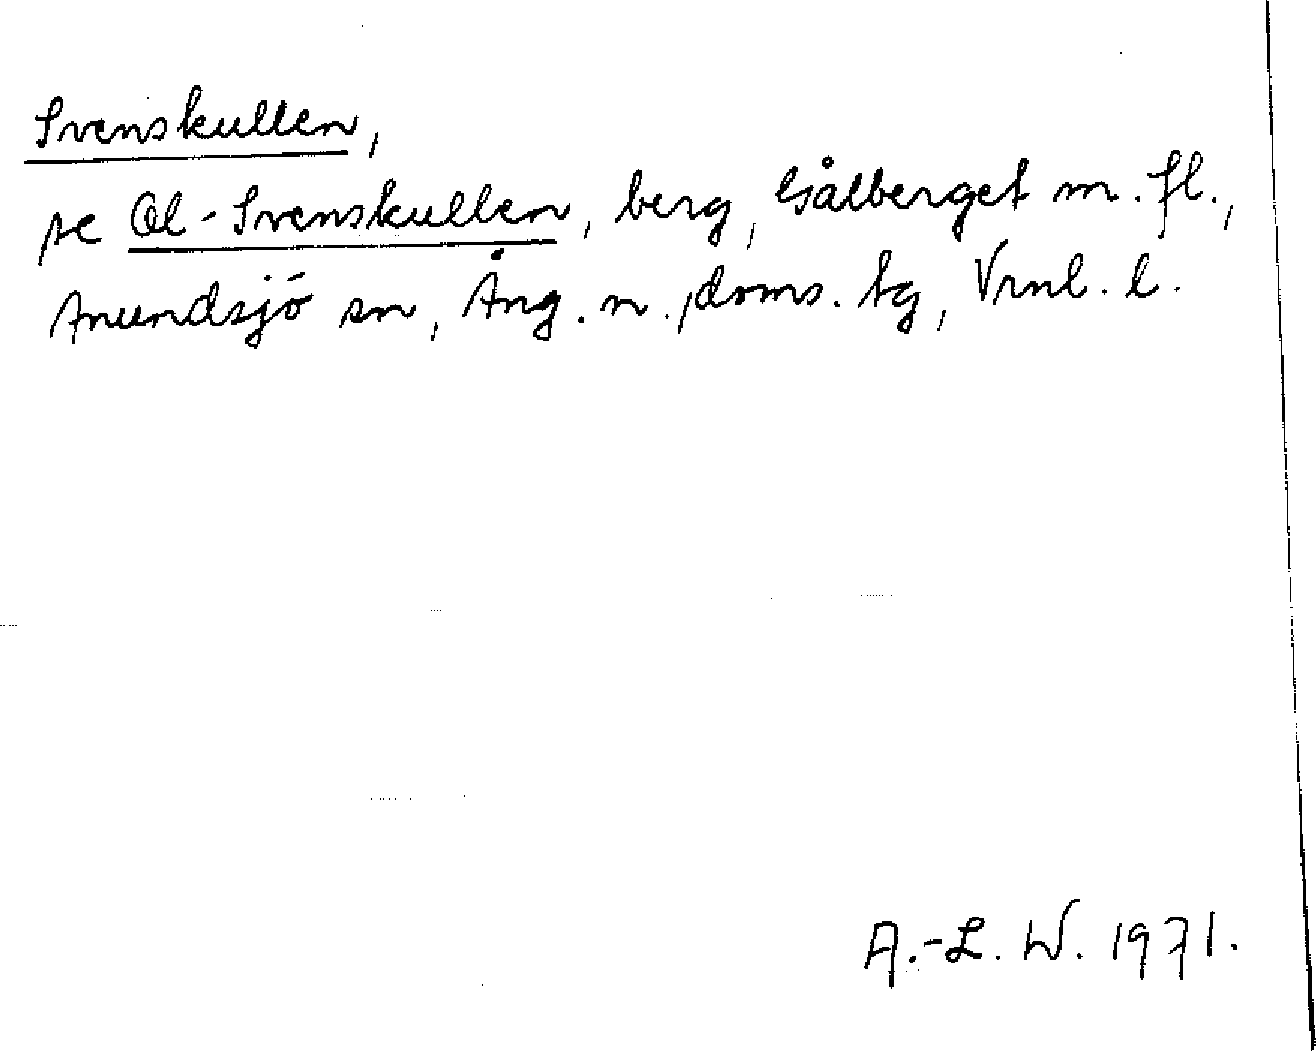 Svenskullen,
se Ol-Svenskullen, berg, Gålberget m. fl.,
Anundsjö sn, Ång. n., doms. tg, Vrnl. l.
A.-L. W. 1971.